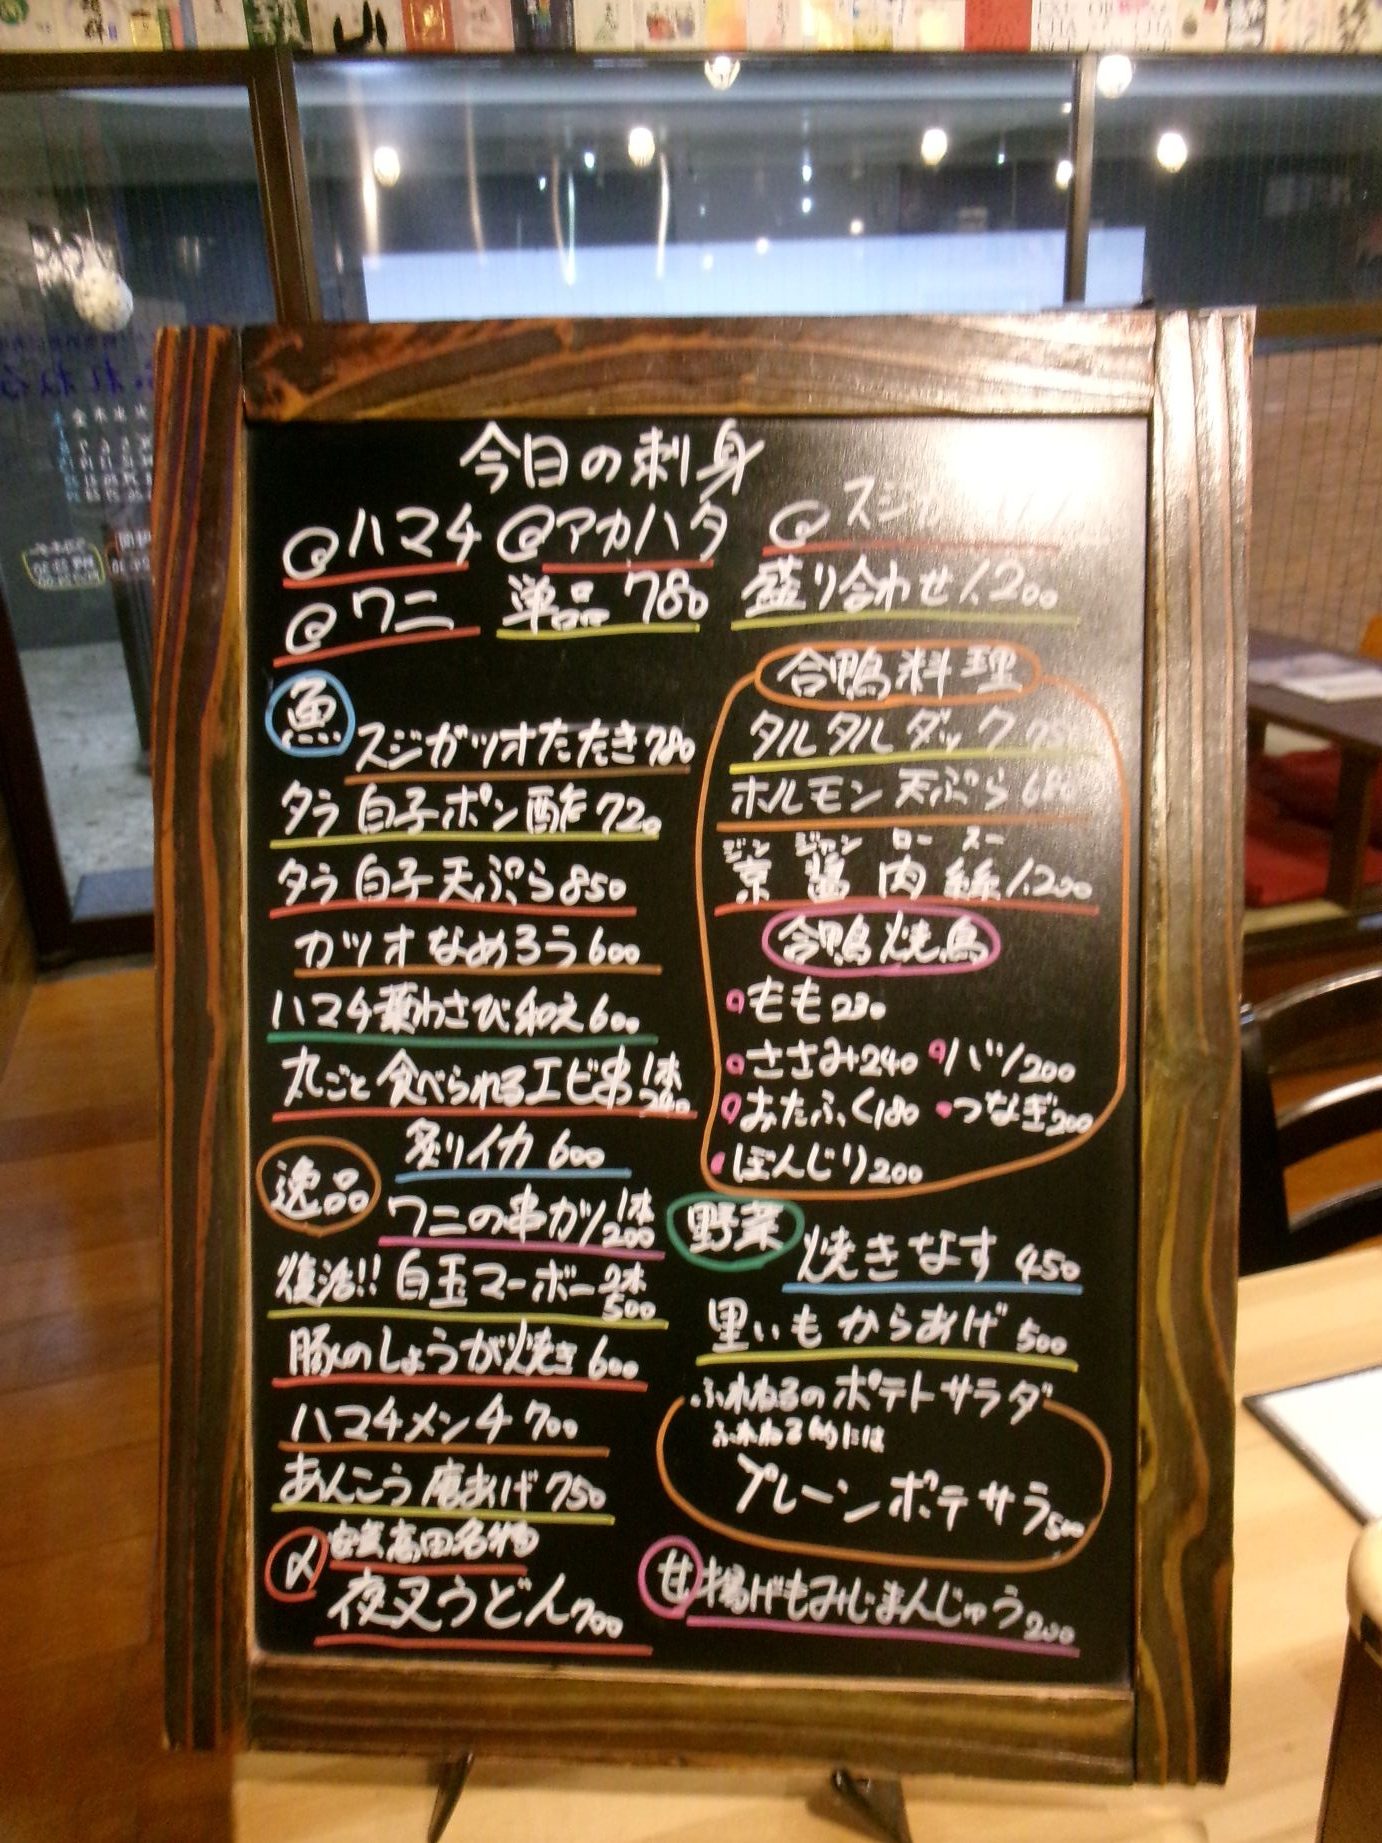 今日の刺身
@ハマチ @アカハタ @スジガ
@ワニ 単品 780 盛り合わせ 1.200
魚
スジガツオたたき 780
タラ白子ポン酢 720
タラ白子天ぷら 850
カツオなめろう 600
ハマチ葉わさび和え 600
丸ごと食べられるエビ串 1本 240
炙りイカ 600
逸品
ワニの串カツ 1本 200
復活!! 白玉マーボー 2本 500
豚のしょうが焼き 600
ハマチメンチ 700
あんこう唐あげ 750
〆
安芸高田名物
夜叉うどん 700
合鴨料理
タルタルダック 78
ホルモン天ぷら 680
ジン ジャン ロー スー
京醤肉絲 1.200
合鴨焼鳥
もも 230
ささみ 240 ハツ 200
おたふく 180 つなぎ 200
ぼんじり 200
野菜
焼きなす 450
里いもからあげ 500
ふれねるのポテトサラダ
ふれねる的には
プレーンポテサラ 500
甘
揚げもみじまんじゅう 200